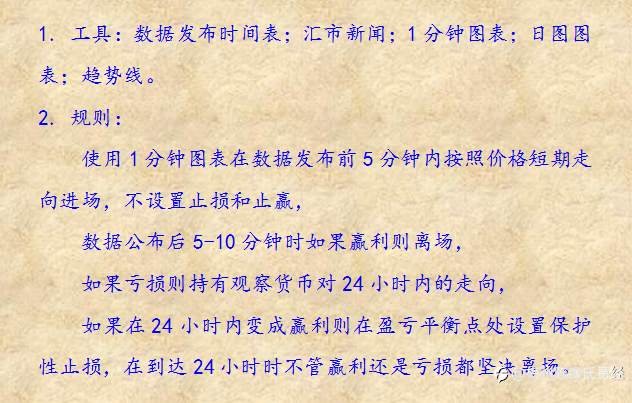 1. 工具：数据发布时间表；汇市新闻；1分钟图表；日图图
表；趋势线。
2. 规则：
使用1分钟图表在数据发布前5分钟内按照价格短期走
向进场，不设置止损和止赢，
数据公布后5-10分钟时如果赢利则离场，
如果亏损则持有观察货币对24小时内的走向，
如果在24小时内变成赢利则在盈亏平衡点处设置保护
性止损，在到达24小时时不管赢利还是亏损都坚决离场。